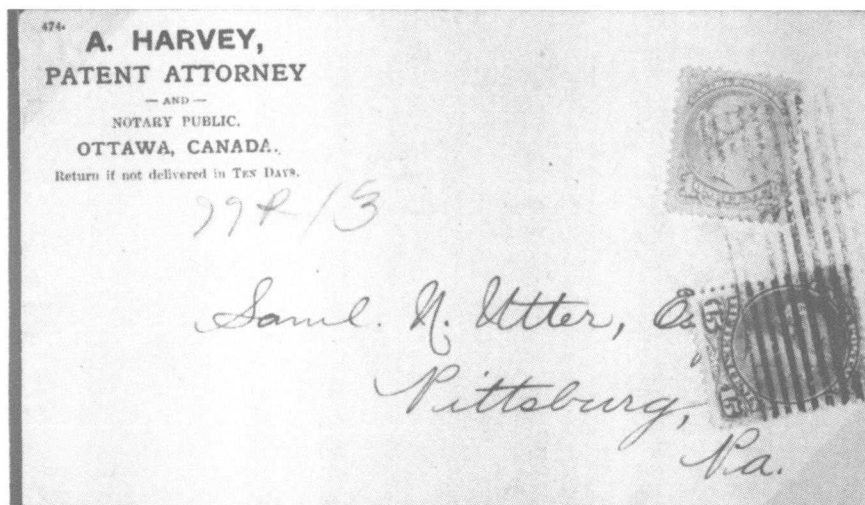 474.
A. HARVEY,
PATENT ATTORNEY
— AND —
NOTARY PUBLIC.
OTTAWA, CANADA.
Return if not delivered in TEN DAYS.
Saml. N. Utter,
Pittsburg,
Pa.
15
15